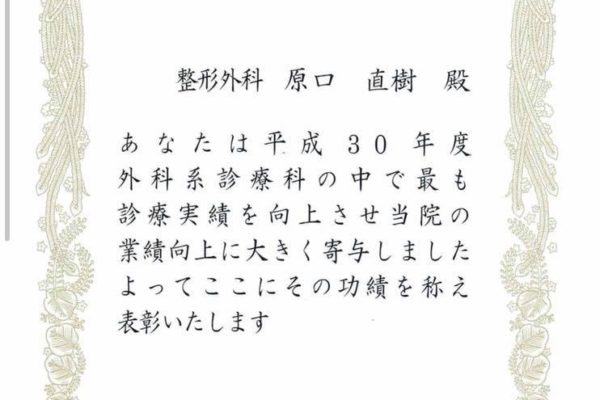 整形外科 原口 直樹 殿
あなたは平成30年度
外科系診療科の中で最も
診療実績を向上させ当院の
業績向上に大きく寄与しました
よってここにその功績を称え
表彰いたします